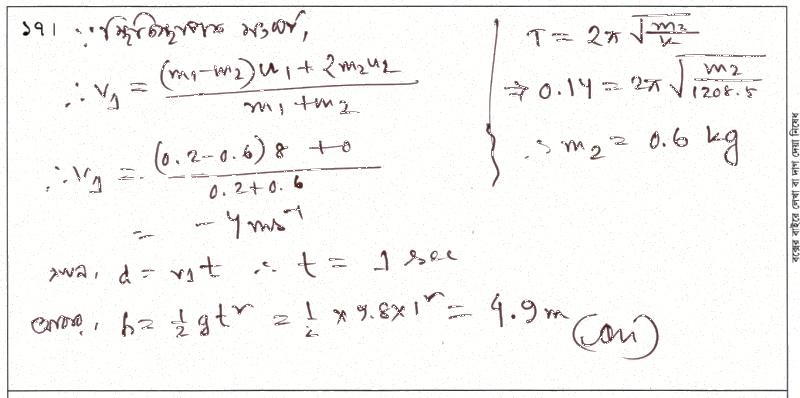 ১৭। ∵ স্থিতিস্থাপক সংঘর্ষ,
∴ v₁ = (m₁-m₂)u₁ + 2m₂u₂ / m₁+m₂
∴ v₁ = (0.2-0.6) 8 + 0 / 0.2+0.6
= -4 ms⁻¹
d = v₁t ∴ t = 1 sec
h = ½ gt² = ½ × 9.8 × 1² = 4.9 m (Ans)
T = 2π √(m₂/k)
⇒ 0.14 = 2π √(m₂/1208.5)
∴ m₂ = 0.6 kg
বক্সের বাইরে লেখা বা দাগ দেয়া নিষেধ